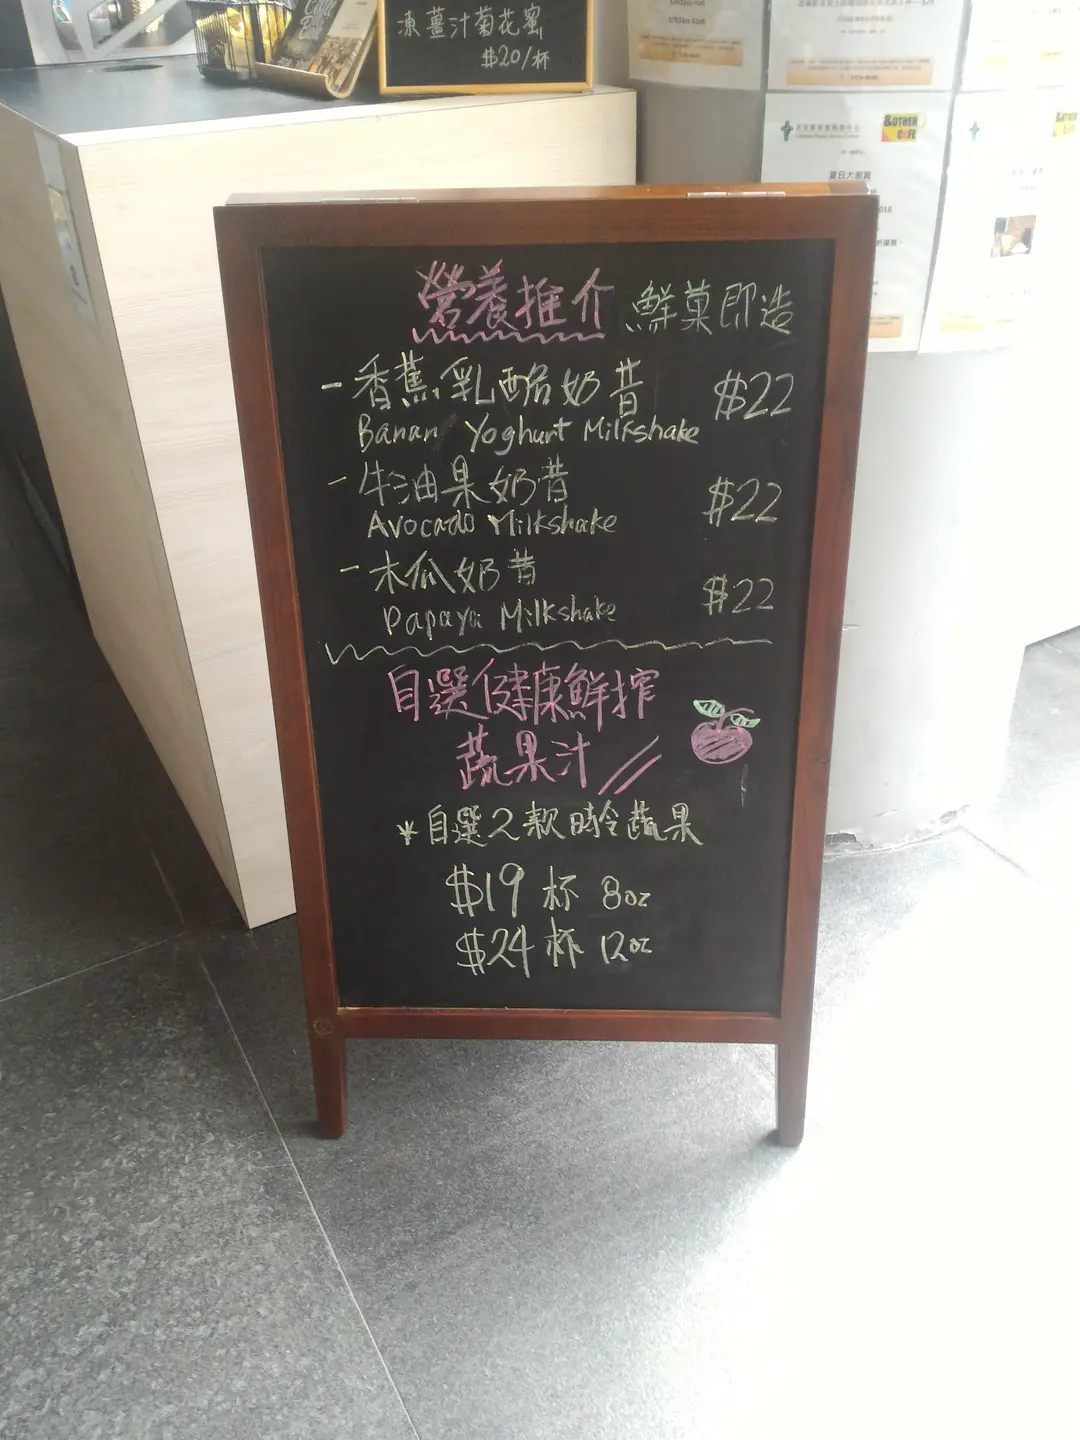 凍薑汁菊花蜜
$20/杯
BOTHAN
CAFE
夏日大解買
營養推介 鮮菓即造
- 香蕉乳酪奶昔 $22
Banan Yoghurt Milkshake
- 牛油果奶昔 $22
Avocado Milkshake
- 木瓜奶昔 $22
Papaya Milkshake
自選健康鮮搾
蔬果汁
*自選2款時令蔬果
$19 杯 8oz
$24 杯 12oz